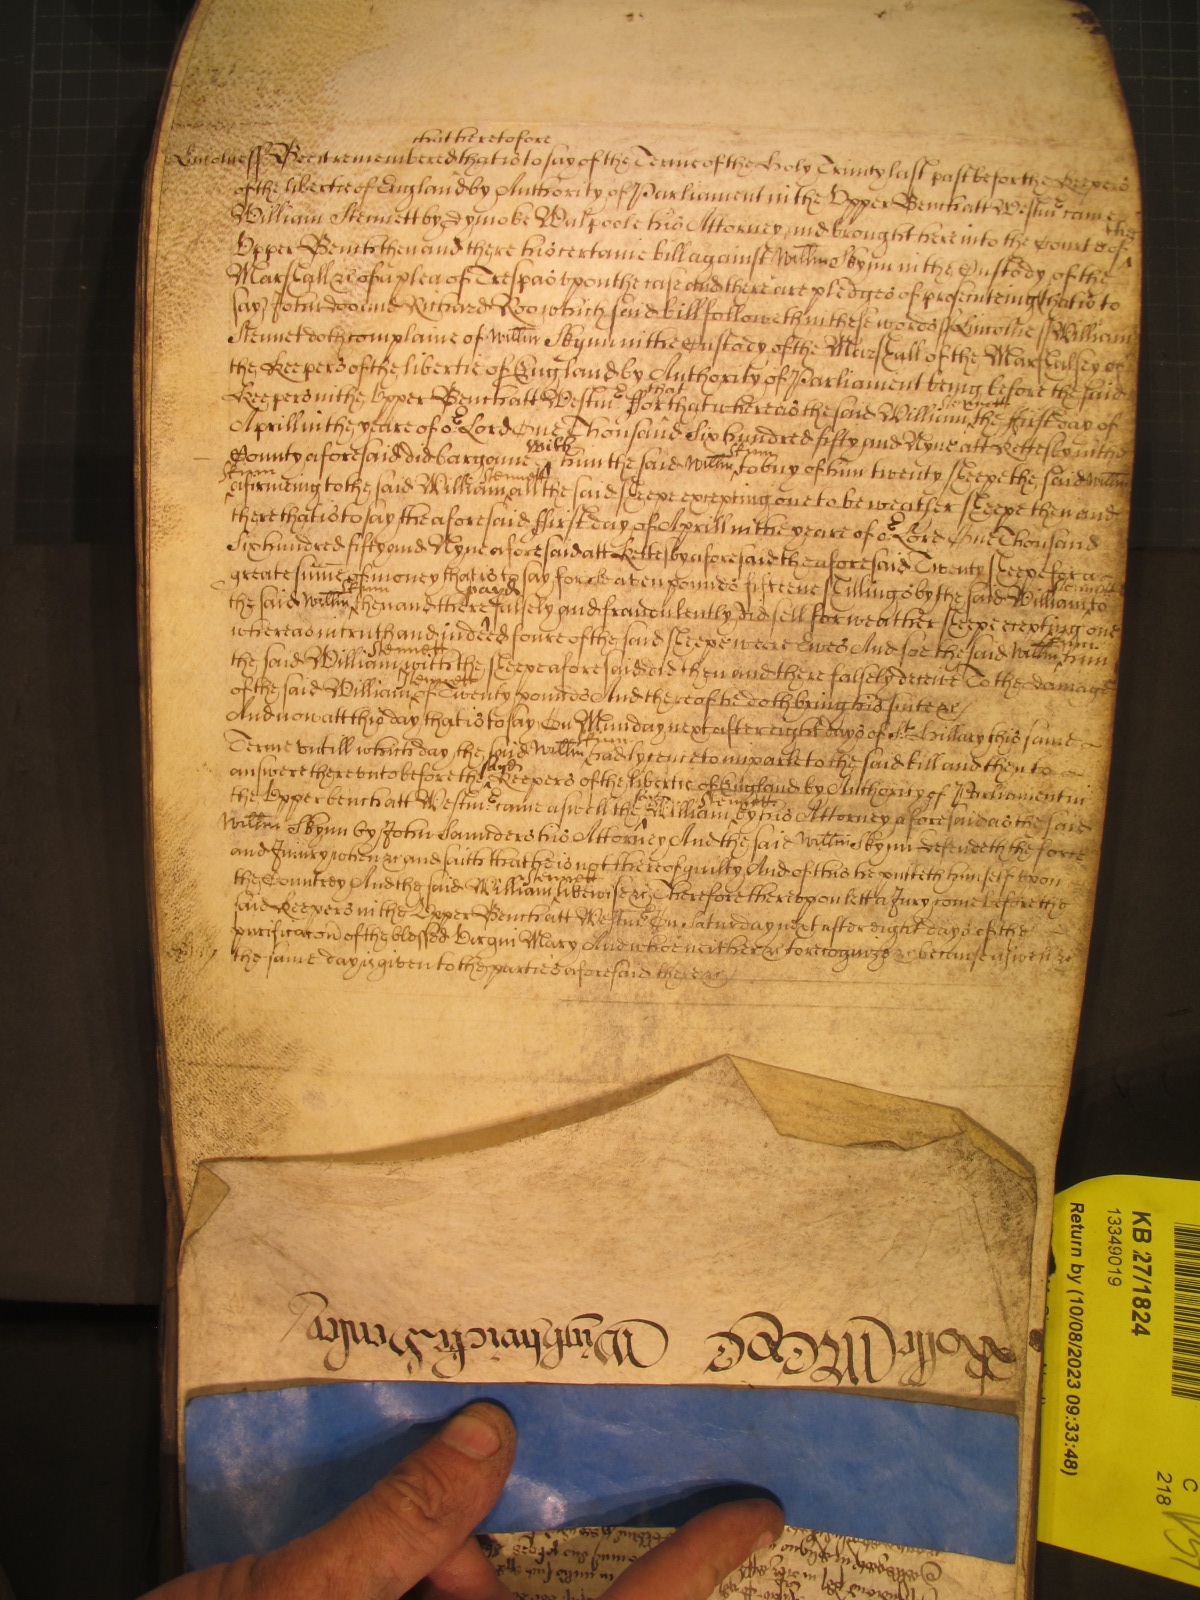 that heretofore
Lincolne ss Bee it remembered that is to say of the Terme of the Holy Trinity last past before the Keepers
of the libertie of England by Authority of Parliament in the Upper Bench att Westmr came
William Stennett by Dymoke Walpoole his Attorney and brought here into the Court of
the
Upper Bench then and there his certaine bill against Willm Skynn in the Custody of the
Marshall &c of a plea of Trespas upon the case and there are pledges of prosecuteing that is to
say John Doo and Richard Roo which said bill followeth in these words ss Lincolne ss William
Stennet doth complaine of Willm Skynn in the Custody of the Marshall of the Marshalsey of
the Keepers of the libertie of England by Authority of Parliament being before the said
Keepers in the Upper Bench att Westmr ffor that whereas the said William the ffirst day of
that Stennett
Aprill in the yeare of or Lord One Thousand Six hundred fifty and Nyne att Kettesby in the
County aforesaid did bargaine him the said Willm to buy of him twenty sheepe the said Willm
with Skynn
affirmeing to the said William all the said sheepe excepting one to be weather sheepe then and
Skynn Stennett
there that is to say the aforesaid ffirst day of Aprill in the yeare of or Lord One Thousand
Six hundred fifty and Nyne aforesaid att Kettesby aforesaid the aforesaid Twenty sheepe for a
greate summe of money that is to say for eleaven pounds fifteene shillings by the said William to
the said Willm then and there falsely and fraudulently did sell for weather sheepe excepting one
Skynn payd Stennett
whereas in truth and indeed foure of the said sheepe were Ewes And soe the said Willm him
the said William with the sheepe aforesaid did then and there falsely deceive To the damage
Stennett Skynn
of the said William of Twenty pounds And thereof he doth bring his suite &c
Stennett
And now att this day that is to say On Munday next after eight dayes of St Hillary this same
Terme untill which day the said Willm had lycence to imparle to the said bill and then to
Skynn
answere thereunto before the Keepers of the libertie of England by Authority of Parliament in
said
the Upper bench att Westmr came aswell the William by his Attorney aforesaid as the said
said Stennett
Willm Skynn by John Saunders his Attorney And the said Willm Skynn defendeth the force
and Injury when &c and saith that he is not thereof guilty And of this he putteth himself upon
the Countrey And the said William likewise &c Therefore thereupon lett a Jury come before the
Stennett
said Keepers in the Upper Bench att Westmr On Saturday next after eight dayes of the
purificacon of the blessed Virgin Mary And who neither &c to recognize &c because aswell &c
the same day is given to the parties aforesaid there &c
Rolle
Wightwicke Henley
KB 27/1824
13349019
Return by (10/08/2023 09:33:48)
C
218